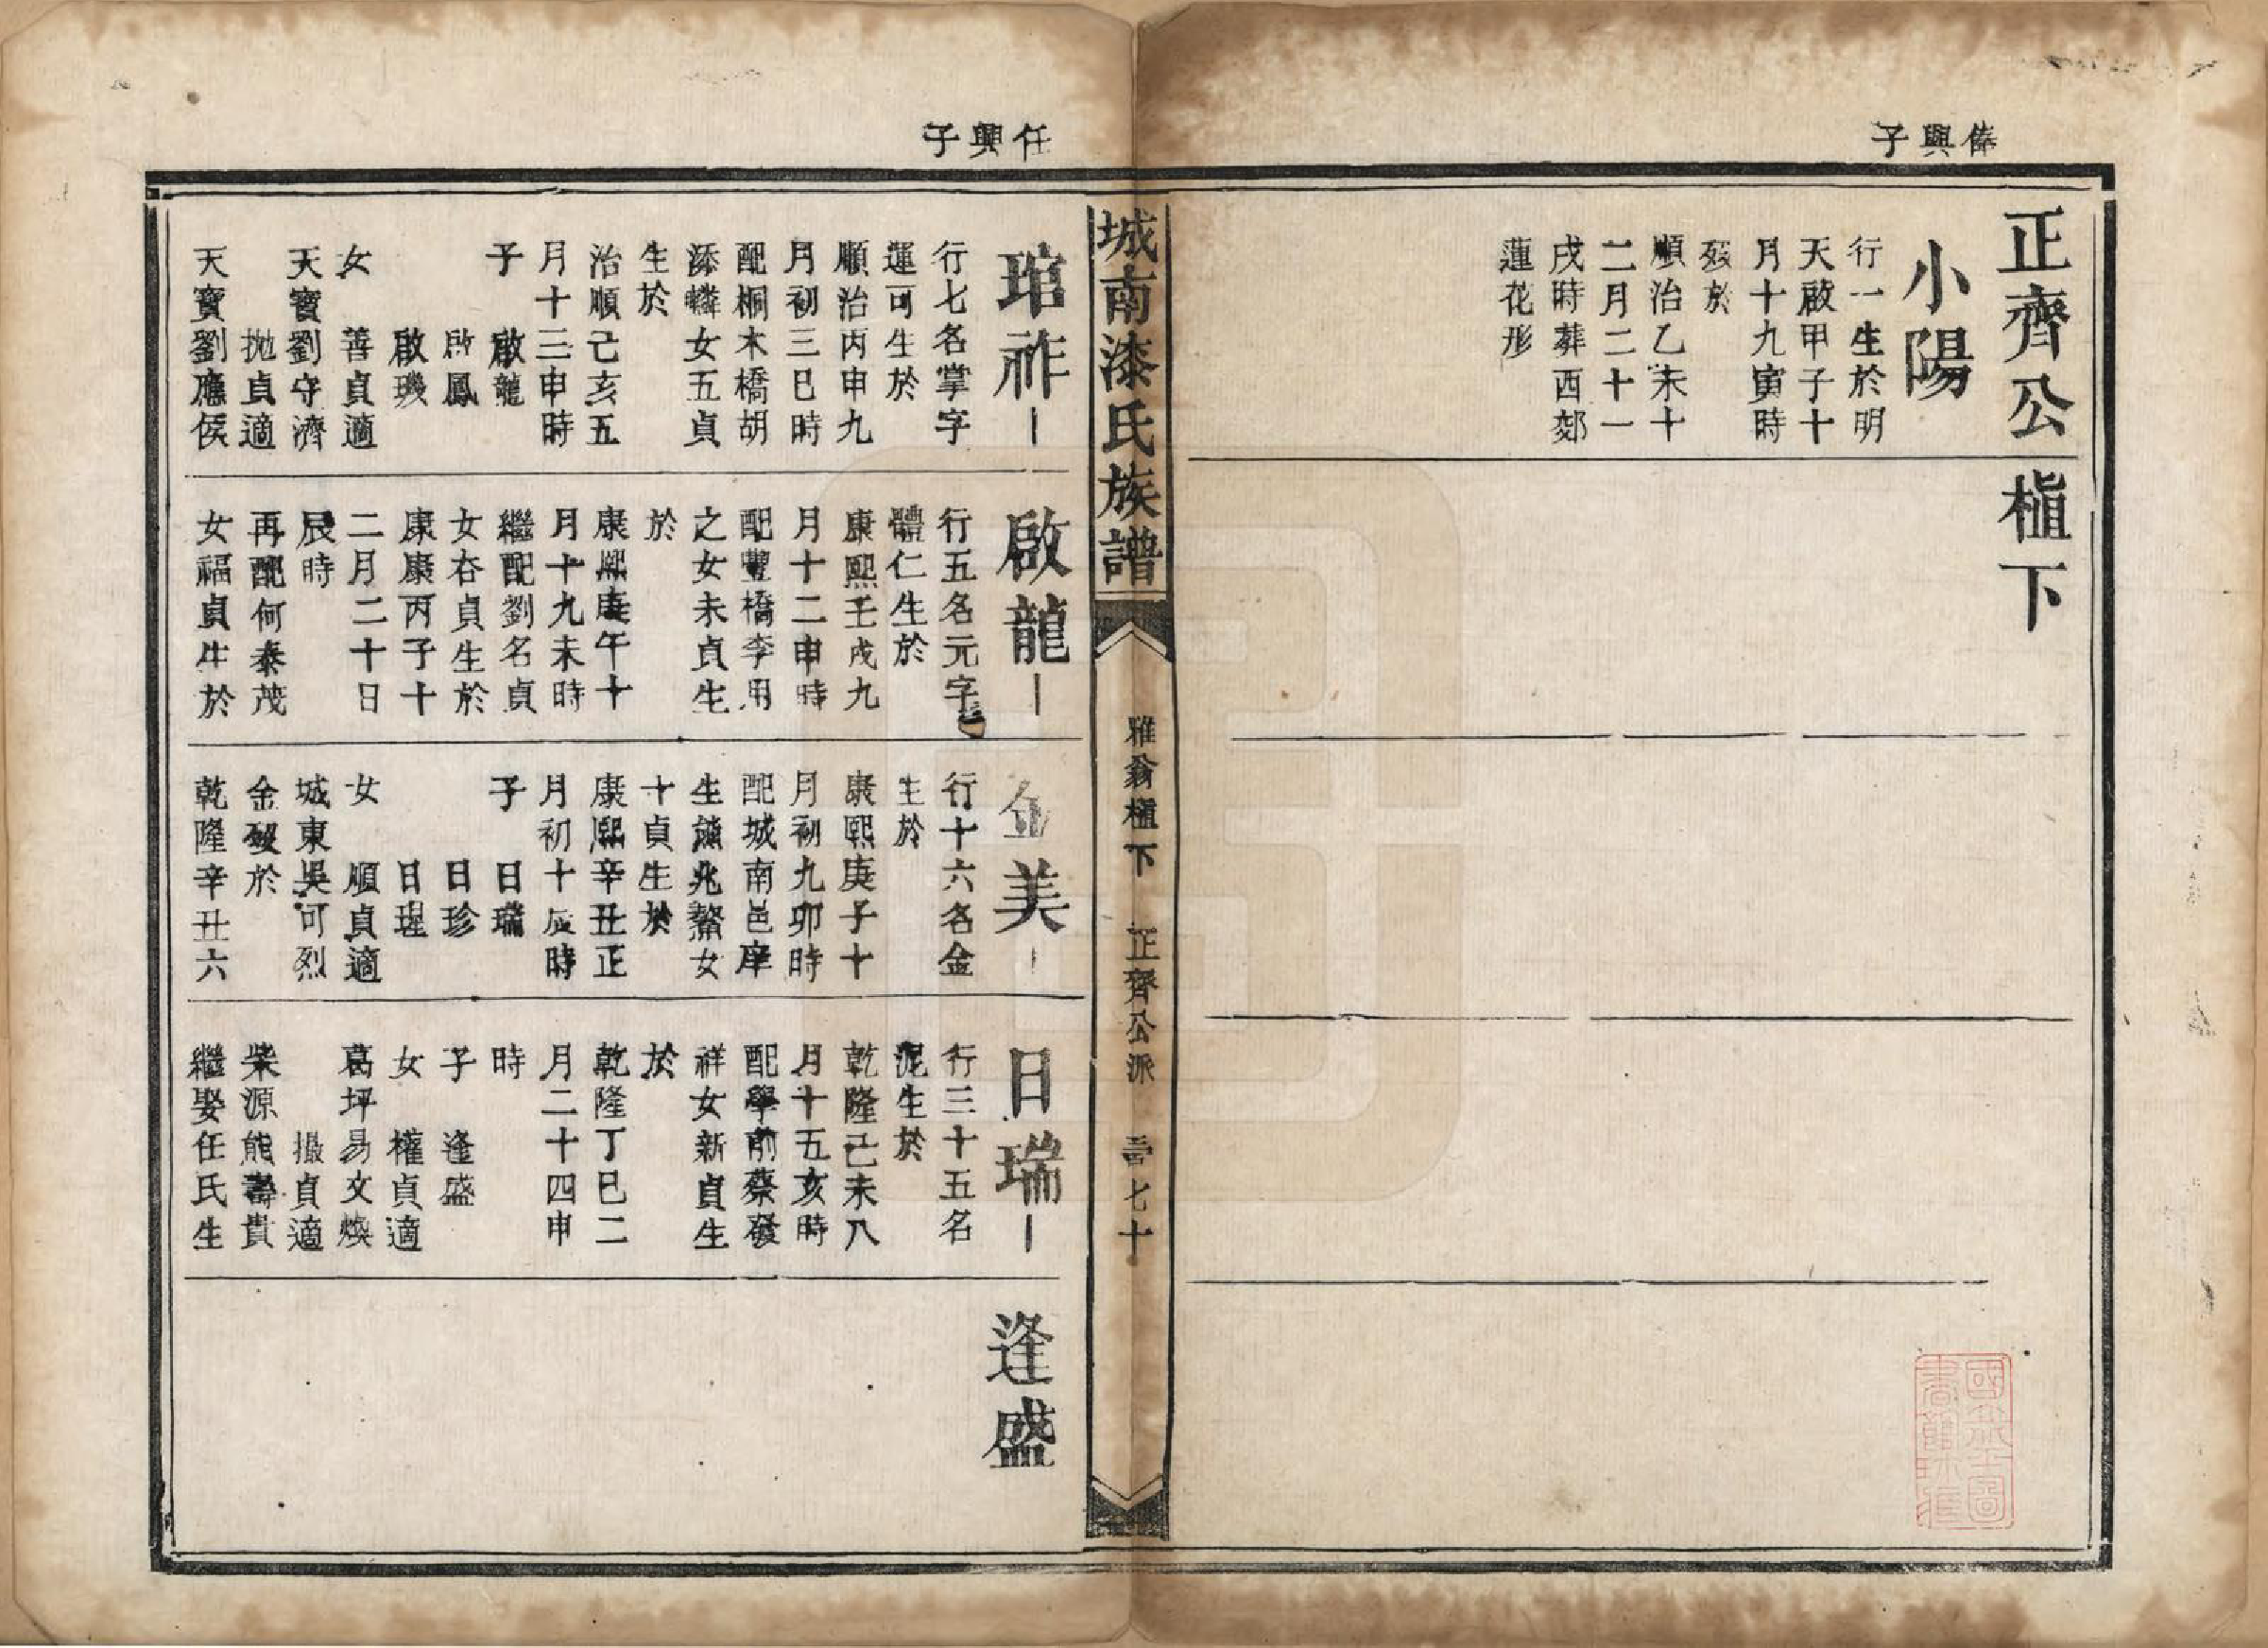 俸興子
正齊公植下
小陽
行一生於明
天啟甲子十
月十九寅時
歿於
順治乙未十
二月二十一
戌時葬西郊
蓮花形
城南漆氏族譜
雅翁植下
正齊公派
七十
任興子
琯祚
行七名掌字
運可生於
順治丙申九
月初三巳時
配桐木橋胡
添轔女五貞
生於
治順己亥五
月十三申時
子 啟龍
啟鳳
啟璣
女 善貞適
天寶劉守濟
拋貞適
天寶劉應侯
啟龍
行五名元字
體仁生於
康熙壬戌九
月十二申時
配豐橋李用
之女未貞生
於
康熙庚午十
月十九未時
繼配劉名貞
女杏貞生於
康康丙子十
二月二十日
辰時
再配何泰茂
女福貞生於
金美
行十六名金
生於
康熙庚子十
月初九卯時
配城南邑庠
生熊兆鰲女
十貞生於
康熙辛丑正
月初十辰時
子 日瑞
日珍
日瑆
女 順貞適
城東吳可烈
金歿於
乾隆辛丑六
日瑞
行三十五名
泥生於
乾隆己未八
月十五亥時
配學前蔡發
祥女新貞生
於
乾隆丁巳二
月二十四申
時
子 逢盛
女 權貞適
葛坪易文煥
撮貞適
柴源熊壽貴
繼娶任氏生
逢盛